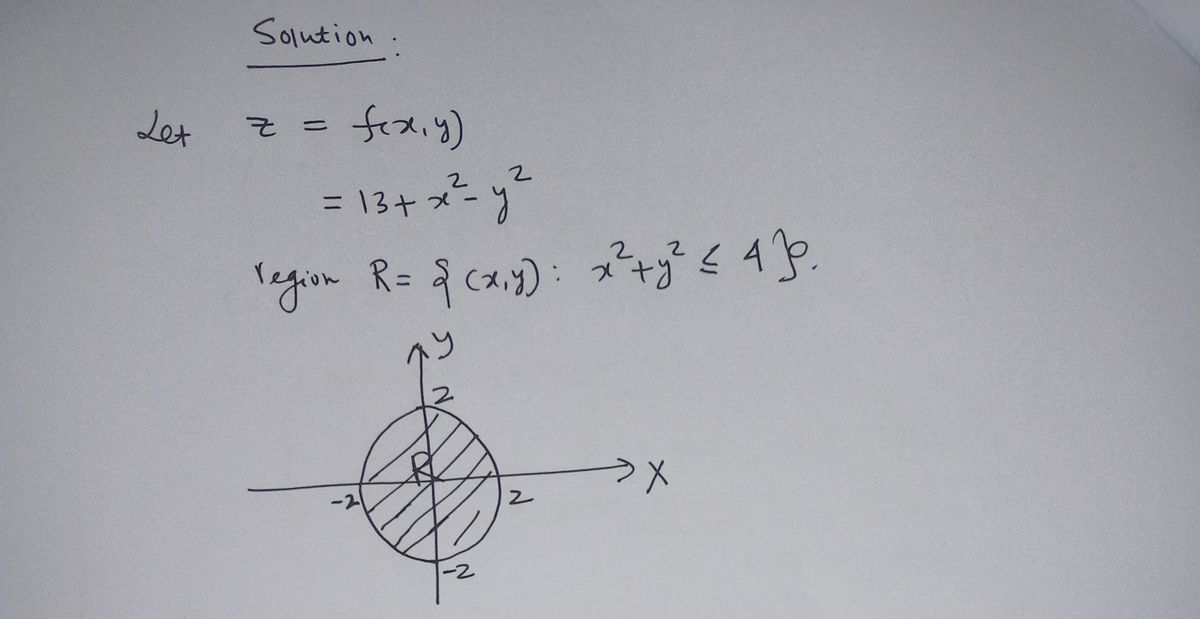 Solution :
Let z = f(x,y)
= 13 + x² - y²
region R = { (x,y) : x² + y² ≤ 4 }.
y
2
R
X
-2
2
-2